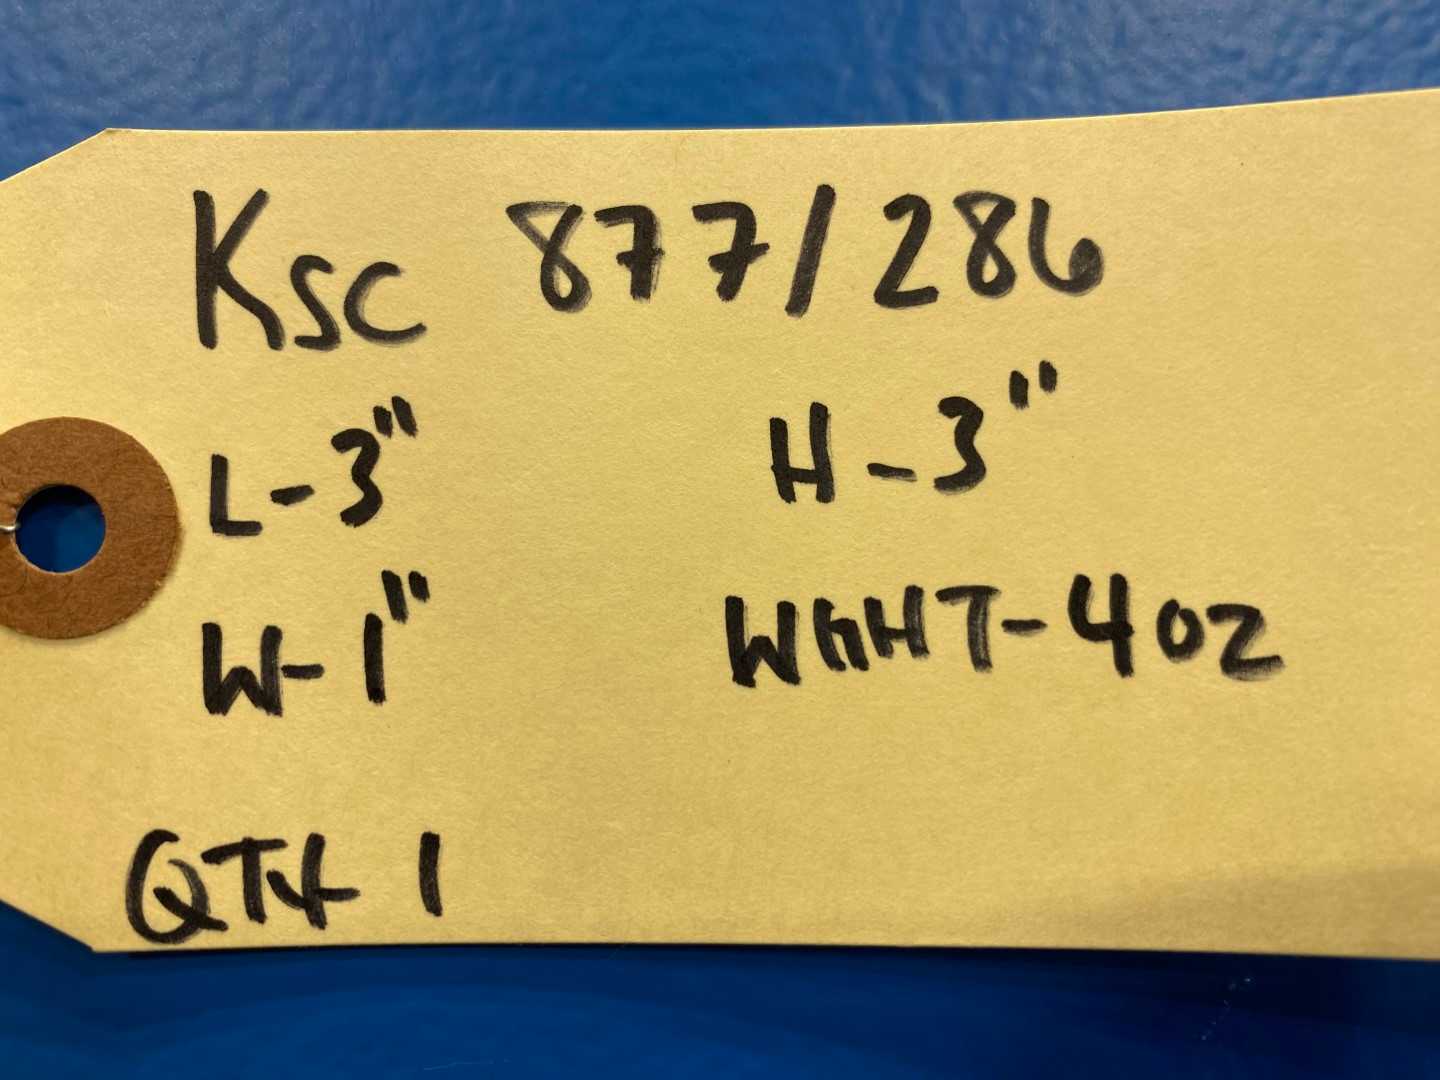 Ksc 877/286
L-3" H-3"
W-1" WGHT-4oz
QTY-1